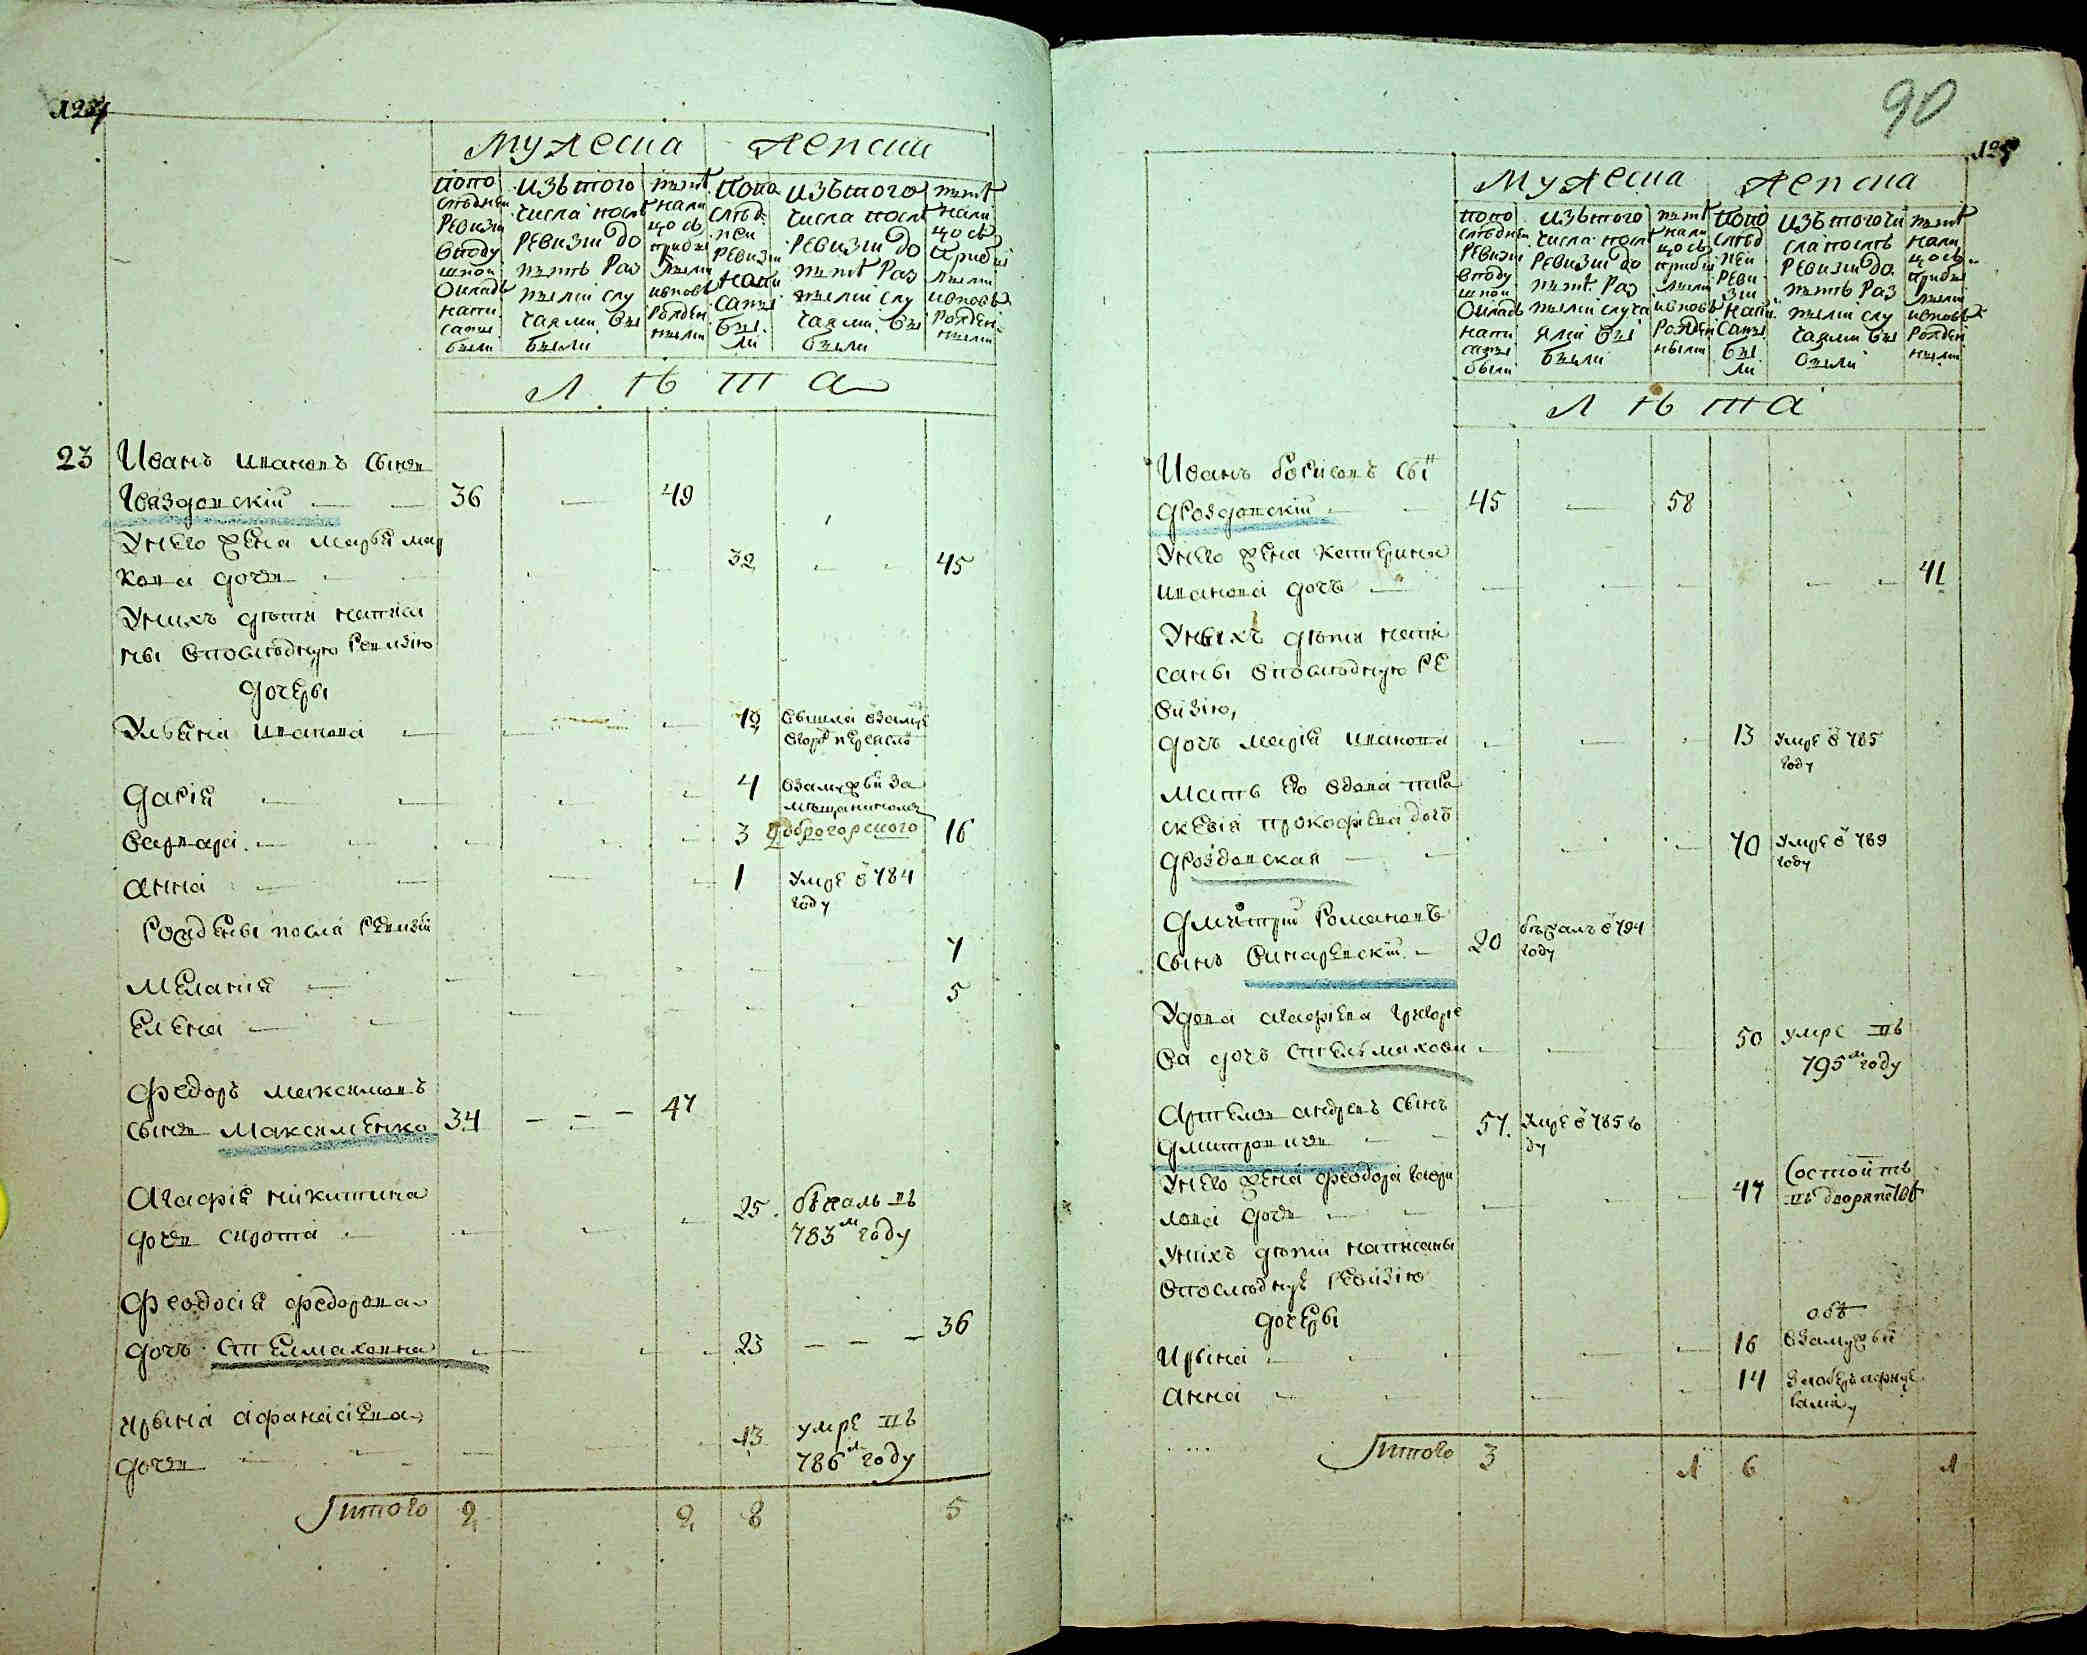 124
Мужеска Женски
попо
следней
ревизи
вподу
шной
окладъ
напи
саны
были
изътого
числа после
ревизии до
ныне раз
ными слу
чаями вы
были
ныне
нали
цо съ
прибы
лыми
ивновь
рожден
ными
попо
след
ней
ревизи
напи
саны
бы
ли
изътого
числа после
ревизии до
ныне раз
ными слу
чаями вы
были
ныне
нали
цо съ
прибы
лыми
ивновь
рожден
ными
Лѣта
23 Иванъ Ивановъ сынъ
Гваздовский 36 49
Унего жена Марья Мар
кова дочь 32 45
Унихъ дети написа
ны впоследную ревизию
дочери
Ульяна Иванова 19 вышла взамуж
Дария 4 взамужьи за
мещанином
Варвара 3 Доброгорского 16
Анна 1 умре в 784
году
рождены после ревизии
Мелания 7
Елена 5
Федоръ Максимовъ
сынъ Максименко 34 47
Агафия Никитина
дочь сирота 25 бежалъ въ
783м году
Феодосия Федорова
дочь Стелмаховна 23 36
Ирына Афанасиева
дочь 13 умре въ
786м году
Итого 2 2 8 5
90
125
Мужеска Женска
попо
следней
ревизии
вподу
шной
окладъ
напи
саны
были
изътого
числа после
ревизии до
ныне раз
ными случа
ями вы
были
ныне
нали
цо съ
прибы
лыми
ивновь
рожден
ными
попо
след
ней
реви
зии
напи
саны
бы
ли
изътого чи
сла после
ревизии до
ныне раз
ными слу
чаями вы
были
ныне
нали
цо съ
прибы
лыми
ивновь
рожден
ными
Лѣта
Иванъ Борисовъ сын
Дроздовский 45 58
Унего жена Катерина
Иванова дочь 41
Унихъ дети напи
саны впоследную ре
визию,
дочь Мария Иванова 13 умре в 785
году
Мать его вдова Пара
скевия Прокофиева дочь
Дроздовская 70 умре в 789
году
Дмитрий Романовъ
сынъ Винарский 20 бежалъ в 794
году
Удова Агафиева Григорие
ва дочь Стелмахова 50 умре въ
795м году
Артемон Андреевъ сынъ
Дмитрович 57 умре в 785 го
ду
Унего жена Феодора Гаври
лова дочь 47 Состоитъ
въ дворянстве
Унихъ дети написаны
впоследную ревизию
дочери
обе
Ирина 16 взамужьи
Анна 14
Итого 3 1 6 1